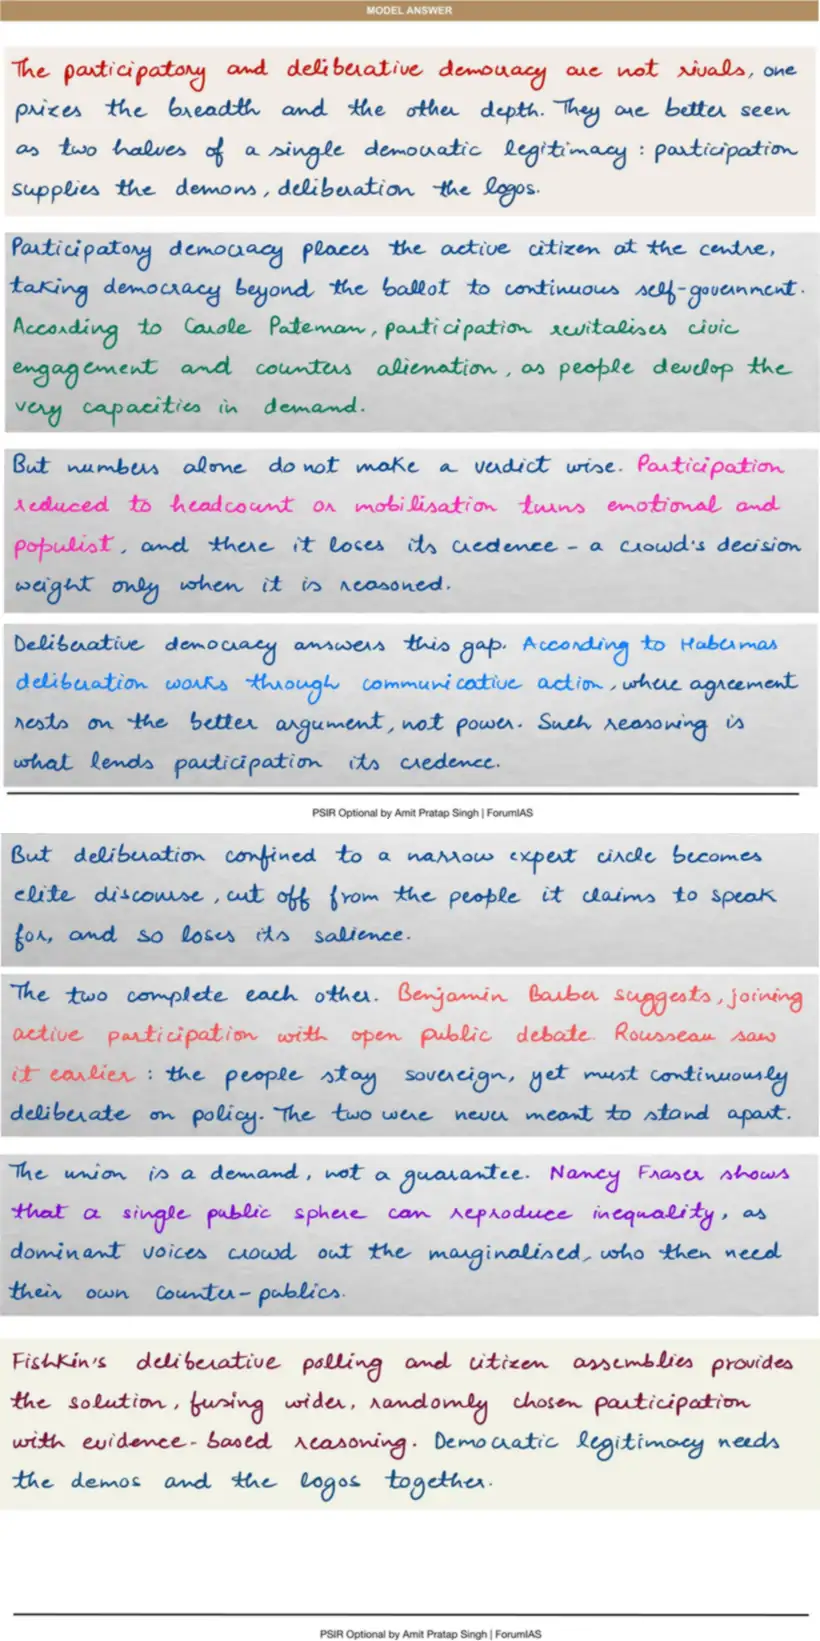 MODEL ANSWER
The participatory and deliberative democracy are not rivals, one
prizes the breadth and the other depth. They are better seen
as two halves of a single democratic legitimacy : participation
supplies the demons, deliberation the logos.
Participatory democracy places the active citizen at the centre,
taking democracy beyond the ballot to continuous self-government.
According to Carole Pateman, participation revitalises civic
engagement and counters alienation, as people develop the
very capacities in demand.
But numbers alone do not make a verdict wise. Participation
reduced to headcount or mobilisation turns emotional and
populist, and there it loses its credence - a crowd's decision
weight only when it is reasoned.
Deliberative democracy answers this gap. According to Habermas
deliberation works through communicative action, where agreement
rests on the better argument, not power. Such reasoning is
what lends participation its credence.
PSIR Optional by Amit Pratap Singh | ForumIAS
But deliberation confined to a narrow expert circle becomes
elite discourse, cut off from the people it claims to speak
for, and so loses its salience.
The two complete each other. Benjamin Barber suggests, joining
active participation with open public debate. Rousseau saw
it earlier : the people stay sovereign, yet must continuously
deliberate on policy. The two were never meant to stand apart.
The union is a demand, not a guarantee. Nancy Fraser shows
that a single public sphere can reproduce inequality, as
dominant voices crowd out the marginalised, who then need
their own counter-publics.
Fishkin's deliberative polling and citizen assemblies provides
the solution, fusing wider, randomly chosen participation
with evidence-based reasoning. Democratic legitimacy needs
the demos and the logos together.
PSIR Optional by Amit Pratap Singh | ForumIAS